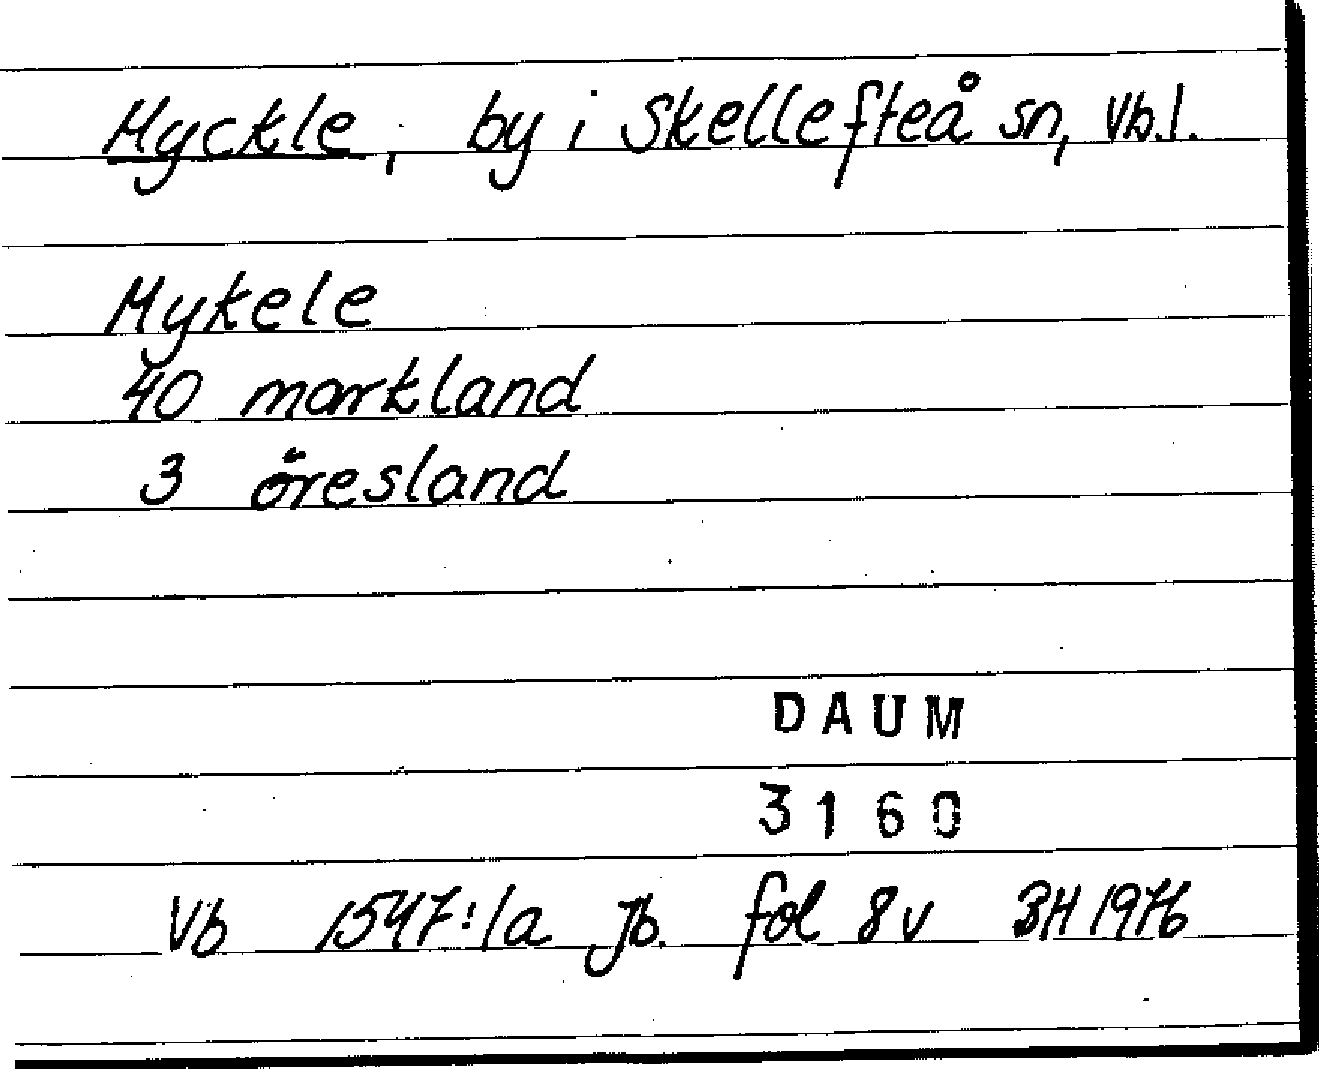 Myckle, by i Skellefteå sn, Vb.l.
Mykele
40 markland
3 öresland
DAUM
3160
Vb 1547:1a Jb. fol 8v BH 1976